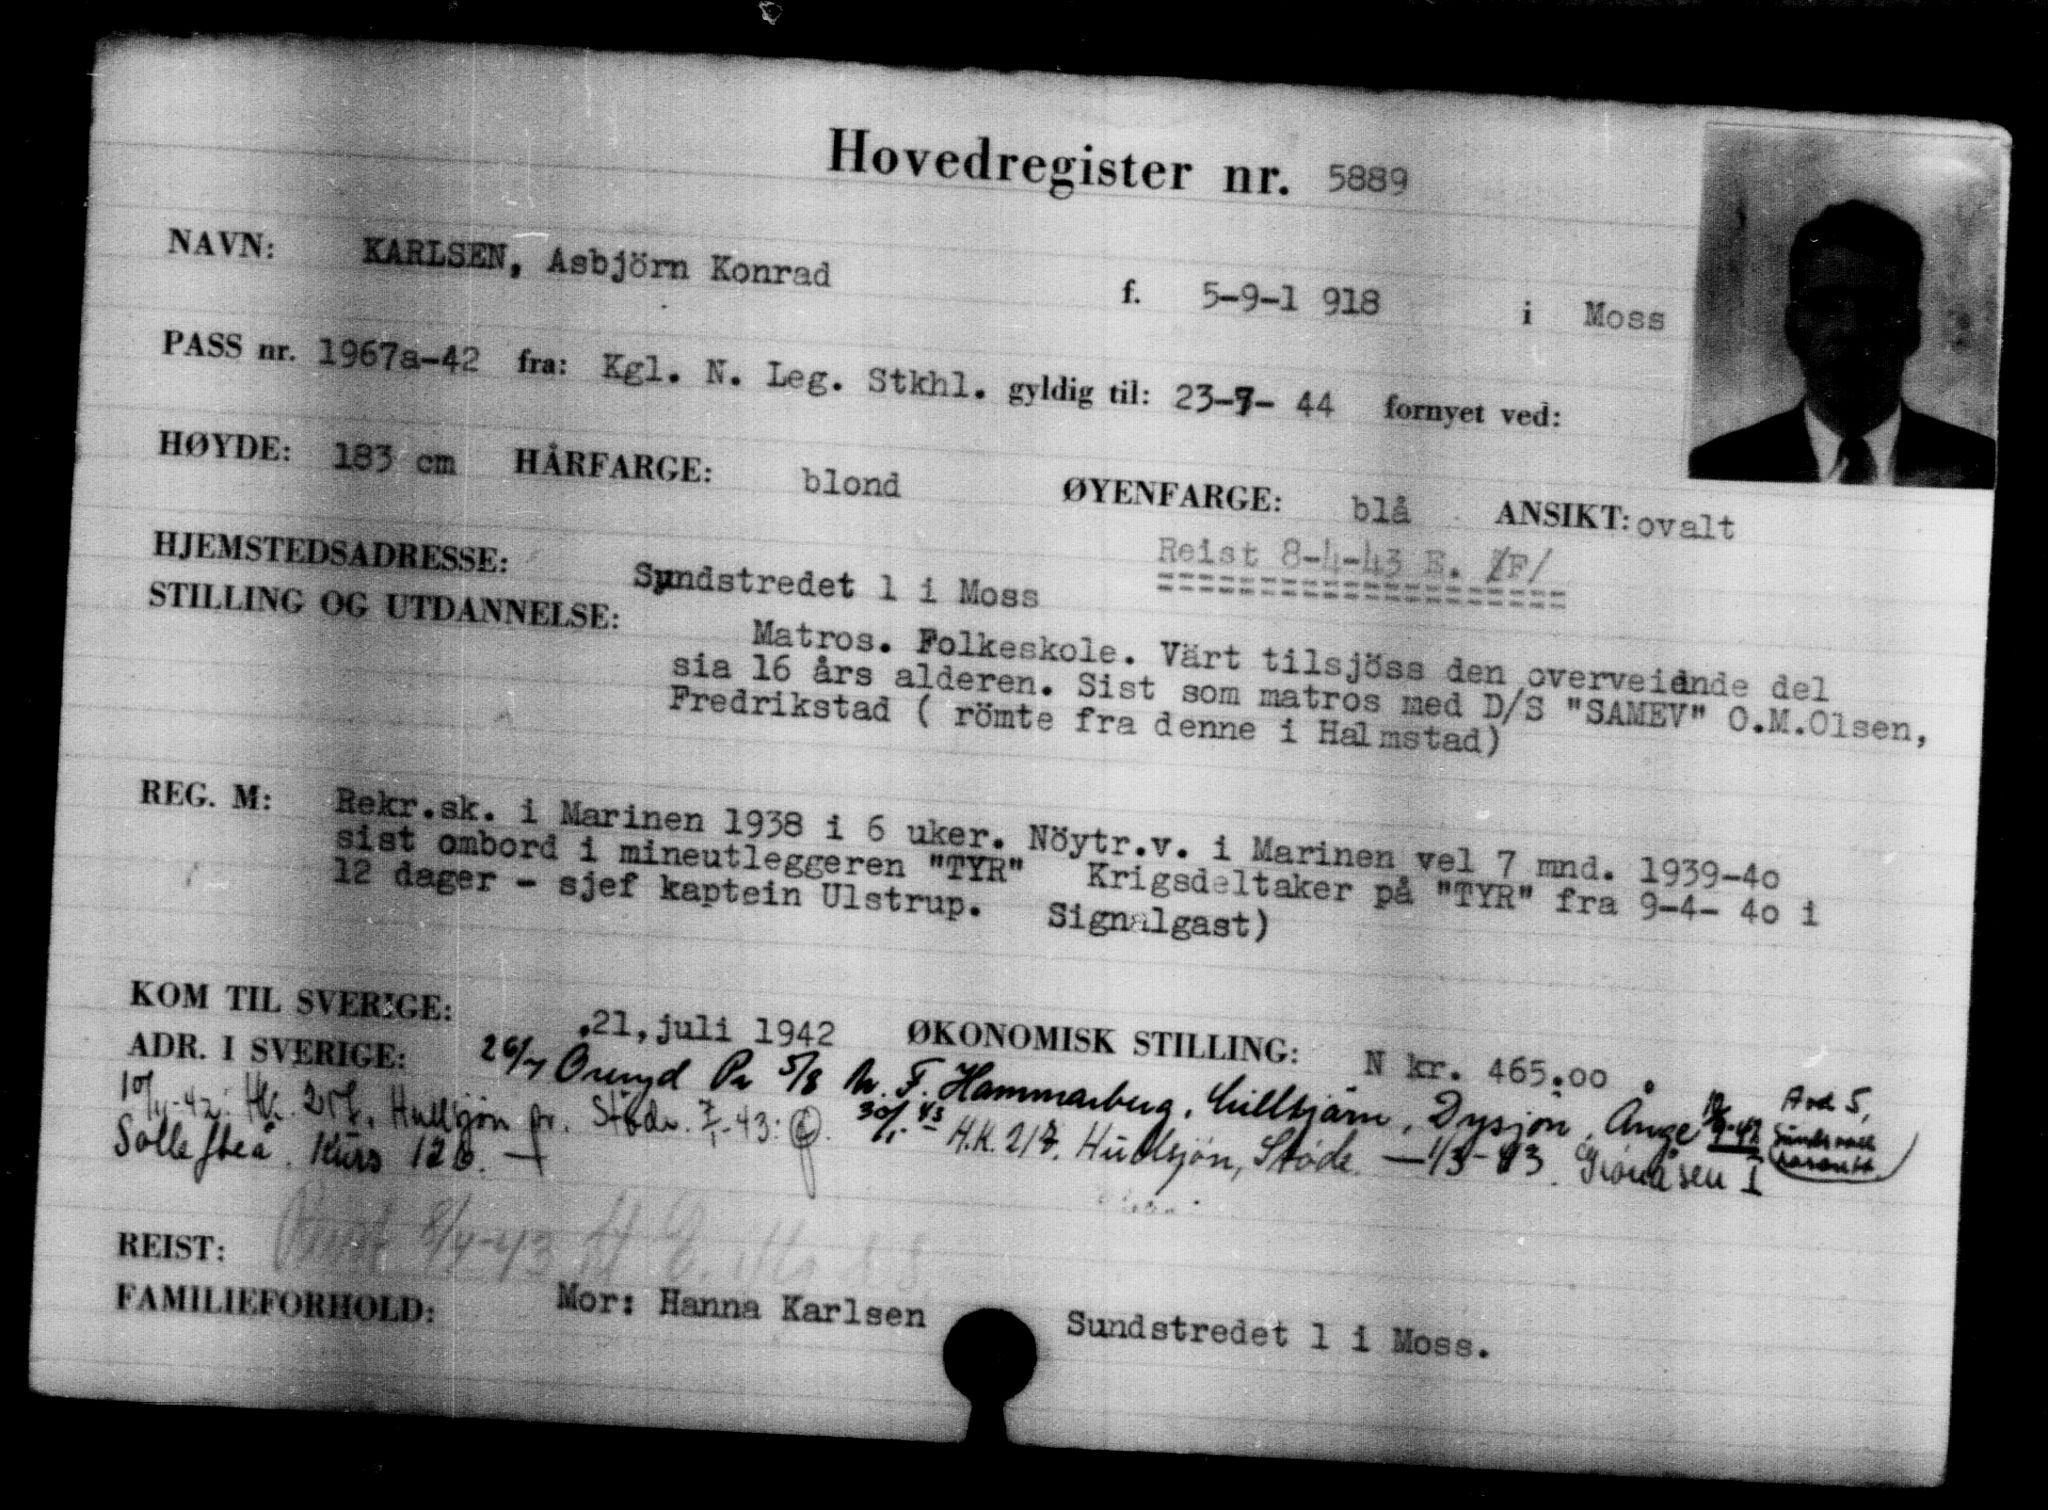 Hovedregister nr. 5889
NAVN: KARLSEN, Asbjörn Konrad f. 5-9-1 918 i Moss
PASS nr. 1967a-42 fra: Kgl. N. Leg. Stkhl. gyldig til: 23-7- 44 fornyet ved:
HØYDE: 183 cm HÅRFARGE: blond ØYENFARGE: blå ANSIKT: ovalt
Reist 8-4-43 E. /F/
HJEMSTEDSADRESSE: Sundstredet 1 i Moss
STILLING OG UTDANNELSE: Matros. Folkeskole. Värt tilsjöss den overveiende del
sia 16 års alderen. Sist som matros med D/S "SAMEV" O.M.Olsen,
Fredrikstad ( römte fra denne i Halmstad)
REG. M: Rekr.sk. i Marinen 1938 i 6 uker. Nöytr.v. i Marinen vel 7 mnd. 1939-40
sist ombord i mineutleggeren "TYR" Krigsdeltaker på "TYR" fra 9-4- 40 i
12 dager - sjef kaptein Ulstrup. Signalgast)
KOM TIL SVERIGE: .21,juli 1942 ØKONOMISK STILLING: N kr. 465.00 .
ADR. I SVERIGE: 26/7 Öreryd Pr 5/8 F. Hammarberg, Lillsjön, Dysjön, Ånge Avd 5,
Hullsjön pr. Stöde. 30/1 43 H.K. 217. Hullsjön, Stöde. — 1/3-43.
Sollefteå. Kurs 12b. —
REIST: Reist 8/4-43 til E.
FAMILIEFORHOLD: Mor: Hanna Karlsen Sundstredet 1 i Moss.